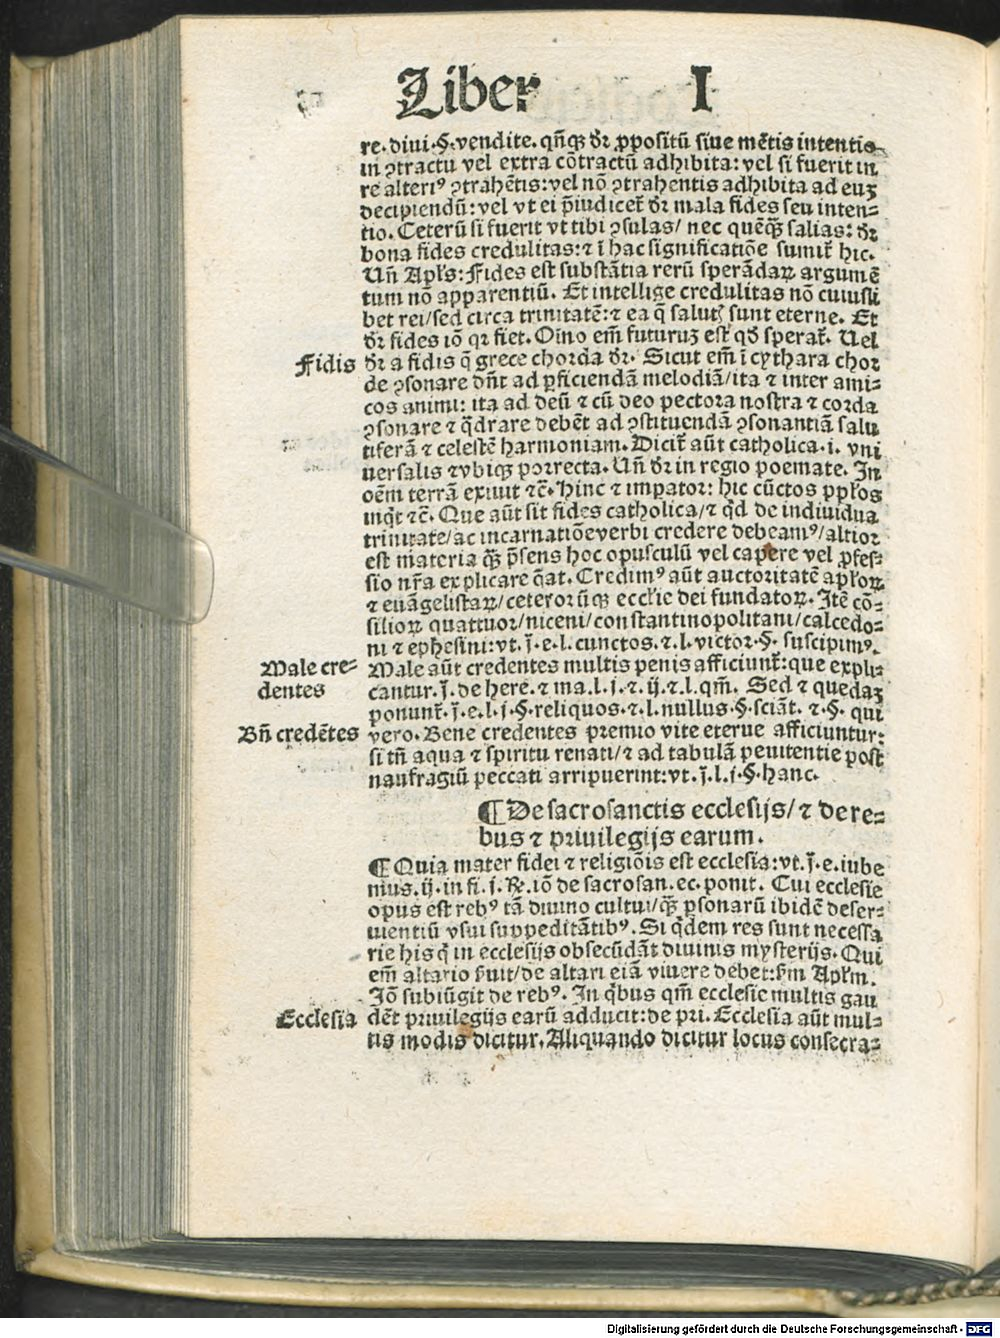 Liber I
re. diui. §. vendite. qñqꝫ dr̄ ꝓpositū siue mētis intentio
in ꝯtractu vel extra cōtractū adhibita: vel si fuerit in
re alteriꝰ ꝯtrahētis: vel nō ꝯtrahentis adhibita ad euꝫ
decipiendū: vel vt ei p̄iudicet̄ dr̄ mala fides seu inten⸗
tio. Ceterū si fuerit vt tibi ꝯsulas/ nec quēqꝫ̄ falias: dr̄
bona fides credulitas: ⁊ ī hac significatiōe sumit̄ hic.
Uñ Apl̄s: Fides est substātia rerū sperādaꝝ argumē
tum nō apparentiū. Et intellige credulitas nō cuiusli
bet rei/ sed circa trinitatē: ⁊ ea q̄ saluti sunt eterne. Et
dr̄ fides iō qꝛ fiet. Oīno em̄ futuruꝫ est qd̄ sperat̄. Uel
Fidis
dr̄ a fidis q̄ grece chorda dr̄. Sicut em̄ ī cythara chor
de ꝯsonare dn̄t ad ꝑficiendā melodiā/ ita ⁊ inter ami⸗
cos animi: ita ad deū ⁊ cū deo pectora nostra ⁊ corda
ꝯsonare ⁊ q̄drare debēt ad ꝯstituendā ꝯsonantiā salu
tiferā ⁊ celestē harmoniam. Dicit̄ aūt catholica .i. vni
uersalis ⁊ vbiqꝫ porrecta. Uñ dr̄ in regio poemate. In
oēm terrā exiuit ⁊c̄. Hinc ⁊ impator: hic cūctos ppl̄os
inq̇t ⁊c̄. Que aūt sit fides catholica/ ⁊ q̇d de indiuidua
trinitate/ ac incarnatiōe verbi credere debeamꝰ/ altior
est materia qꝫ̄ p̄sens hoc opusculū vel capere vel ꝓfes⸗
sio nr̄a explicare q̄at. Credimꝰ aūt auctoritatē apl̄oꝝ
⁊ euāgelistaꝝ/ ceterorūqꝫ eccl̄ie dei fundatoꝝ. Itē cō⸗
silioꝝ quattuor/ niceni/ constantinopolitani/ calcedo⸗
ni ⁊ ephesini: vt. j̄. e. l. cunctos. ⁊. l. victor. §. suscipimꝰ.
Male cre⸗
dentes
Male aūt credentes multis penis afficiunt̄: que expli⸗
cantur. j̄. de here. ⁊ ma. l. j. ⁊. ij. ⁊. l. qm̄. Sed ⁊ quedaꝫ
ponunt̄. j̄. e. l. j. §. reliquos. ⁊. l. nullus. §. sciāt. ⁊. §. qui
Bñ credētes
vero. Bene credentes premio vite eterne afficiuntur:
si tñ aqua ⁊ spiritu renati/ ⁊ ad tabulā penitentie post
naufragiū peccati arripuerint: vt. j̄. l. j. §. hanc.
¶ De sacrosanctis ecclesijs/ ⁊ de re⸗
bus ⁊ priuilegijs earum.
¶ Quia mater fidei ⁊ religiōis est ecclesia: vt. j̄. e. iube
mus. ij. in fi. j. ℞. iō de sacrosan. ec. ponit. Cui ecclesie
opus est rebꝰ tā diuino cultui/ qꝫ̄ ꝑsonarū ibidē deser⸗
uientiū vsui suppeditātibꝰ. Si q̇dem res sunt necessa
rie his q̇ in ecclesijs obsecūdāt diuinis mysterijs. Qui
em̄ altario ẜuit/ de altari etiā viuere debet: ẜm Apl̄m.
Iō subiūgit de rebꝰ. In q̇bus qm̄ ecclesie multis gau
Ecclesia
dēt priuilegijs earū adducit: de pri. Ecclesia aūt mul⸗
tis modis dicitur. Aliquando dicitur locus consecra⸗
Digitalisierung gefördert durch die Deutsche Forschungsgemeinschaft - DFG